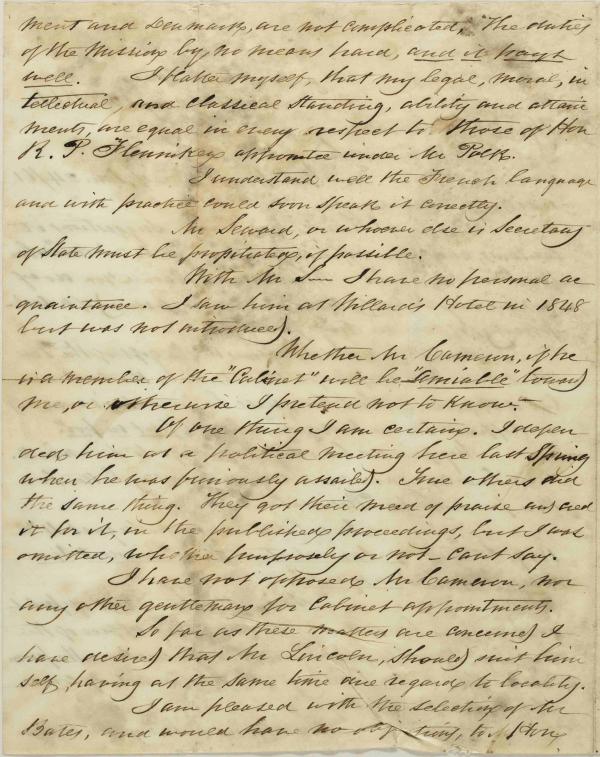 ment and Denmark, are not complicated, "The duties
of the mission by no means hard, and it pays
well. I flatter myself, that my legal, moral, in
tellectual, and classical standing, ability and attain
ments, are equal in every respect to those of Hon
R. P. Flenniken appointee under Mr Polk.
I understand well the French language
and with practice could soon speak it correctly.
Mr Seward, or whoever else is Secretary
of State must be propitiated, if possible.
With Mr S I have no personal ac
quaintance. I saw him at Willard's Hotel in 1848
but was not introduced.
Whether Mr Cameron, if he
is a member of the "Cabinet" will be "amiable" toward
me, or otherwise I pretend not to know.
Of one thing I am certain. I defen
ded him at a political meeting here last Spring
when he was furiously assailed. True others did
the same thing. They got their meed of praise and cred
it for it, in the published proceedings, but I was
omitted, whether purposely or not - cant say.
I have not opposed Mr Cameron, nor
any other gentleman for Cabinet appointments.
So far as these matters are concerned I
have desired that Mr Lincoln, should suit him
self, having at the same time due regard to locality.
I am pleased with the selection of Mr
Bates, and would have no objections, to Hon